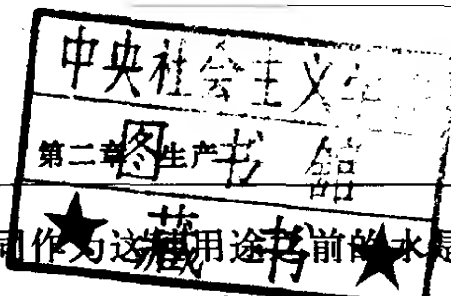 中央社会主义学
第二章 生产
图书馆
★藏书★
同作为这种用途之前的水是